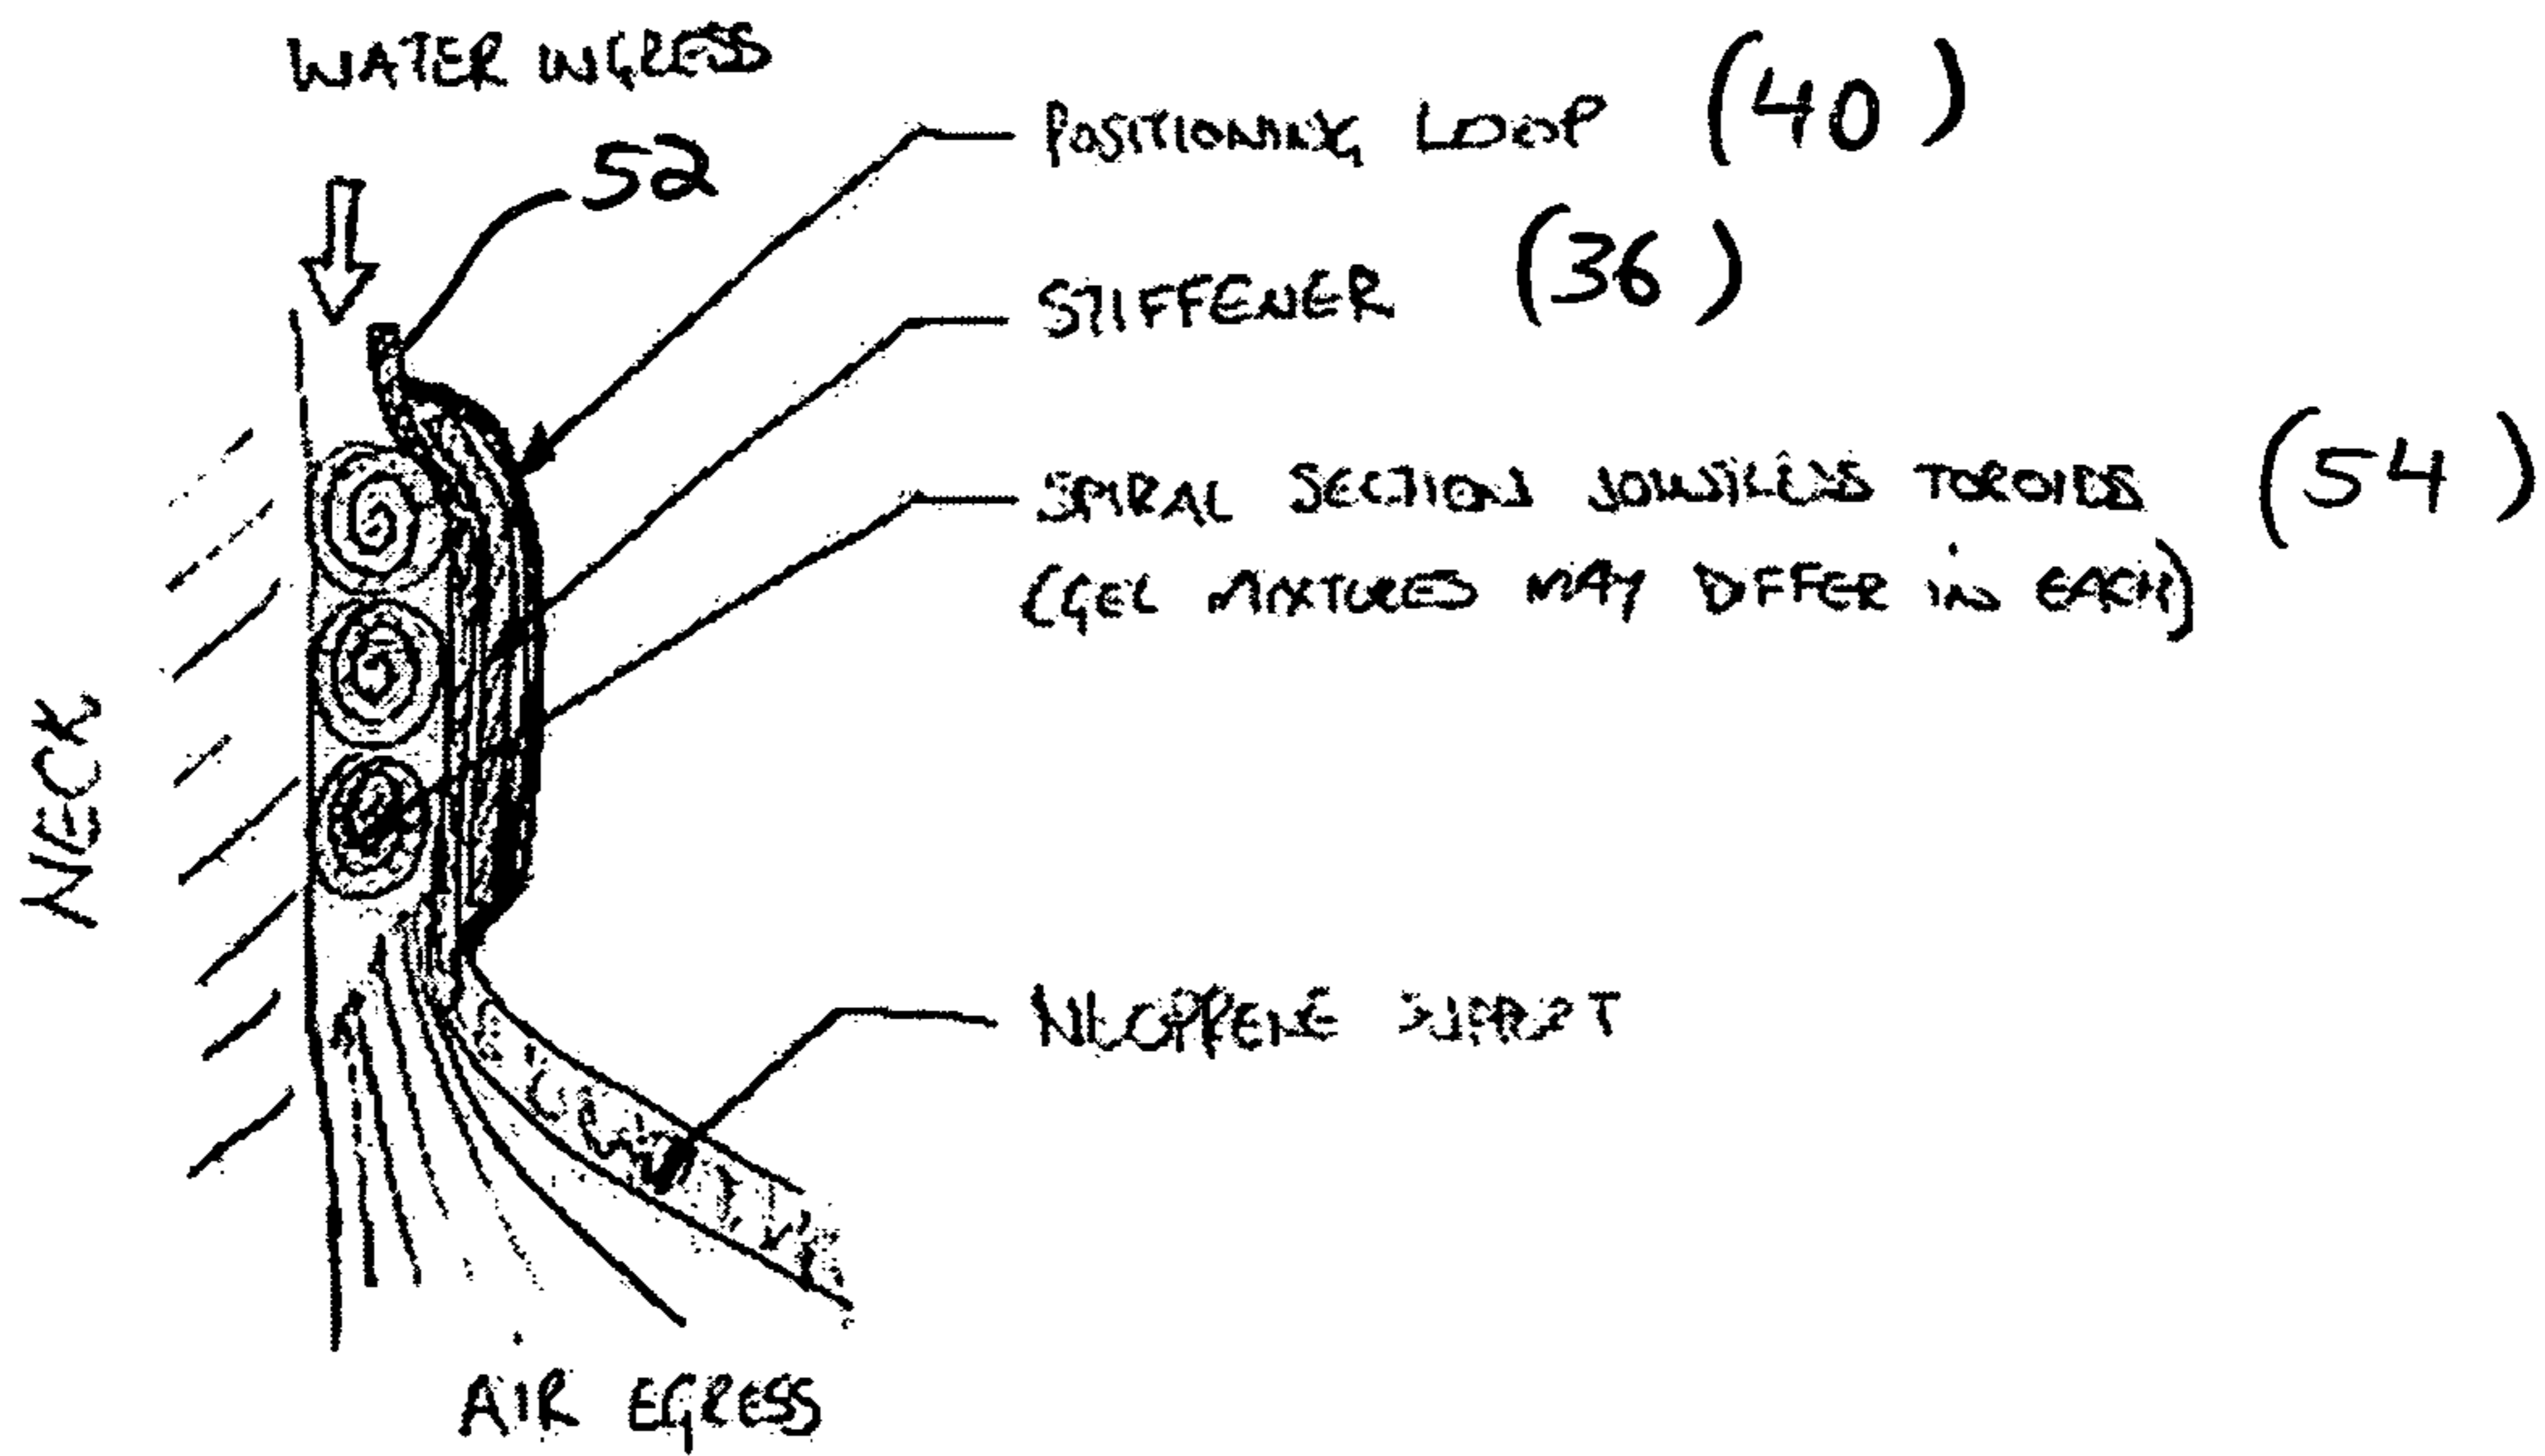 WATER INGRESS
52
POSITIONING LOOP (40)
STIFFENER (36)
SPIRAL SECTION TOROIDS (54)
(GEL MIXTURES MAY DIFFER IN EACH)
NECK
NEOPRENE SUPPORT
AIR EGRESS